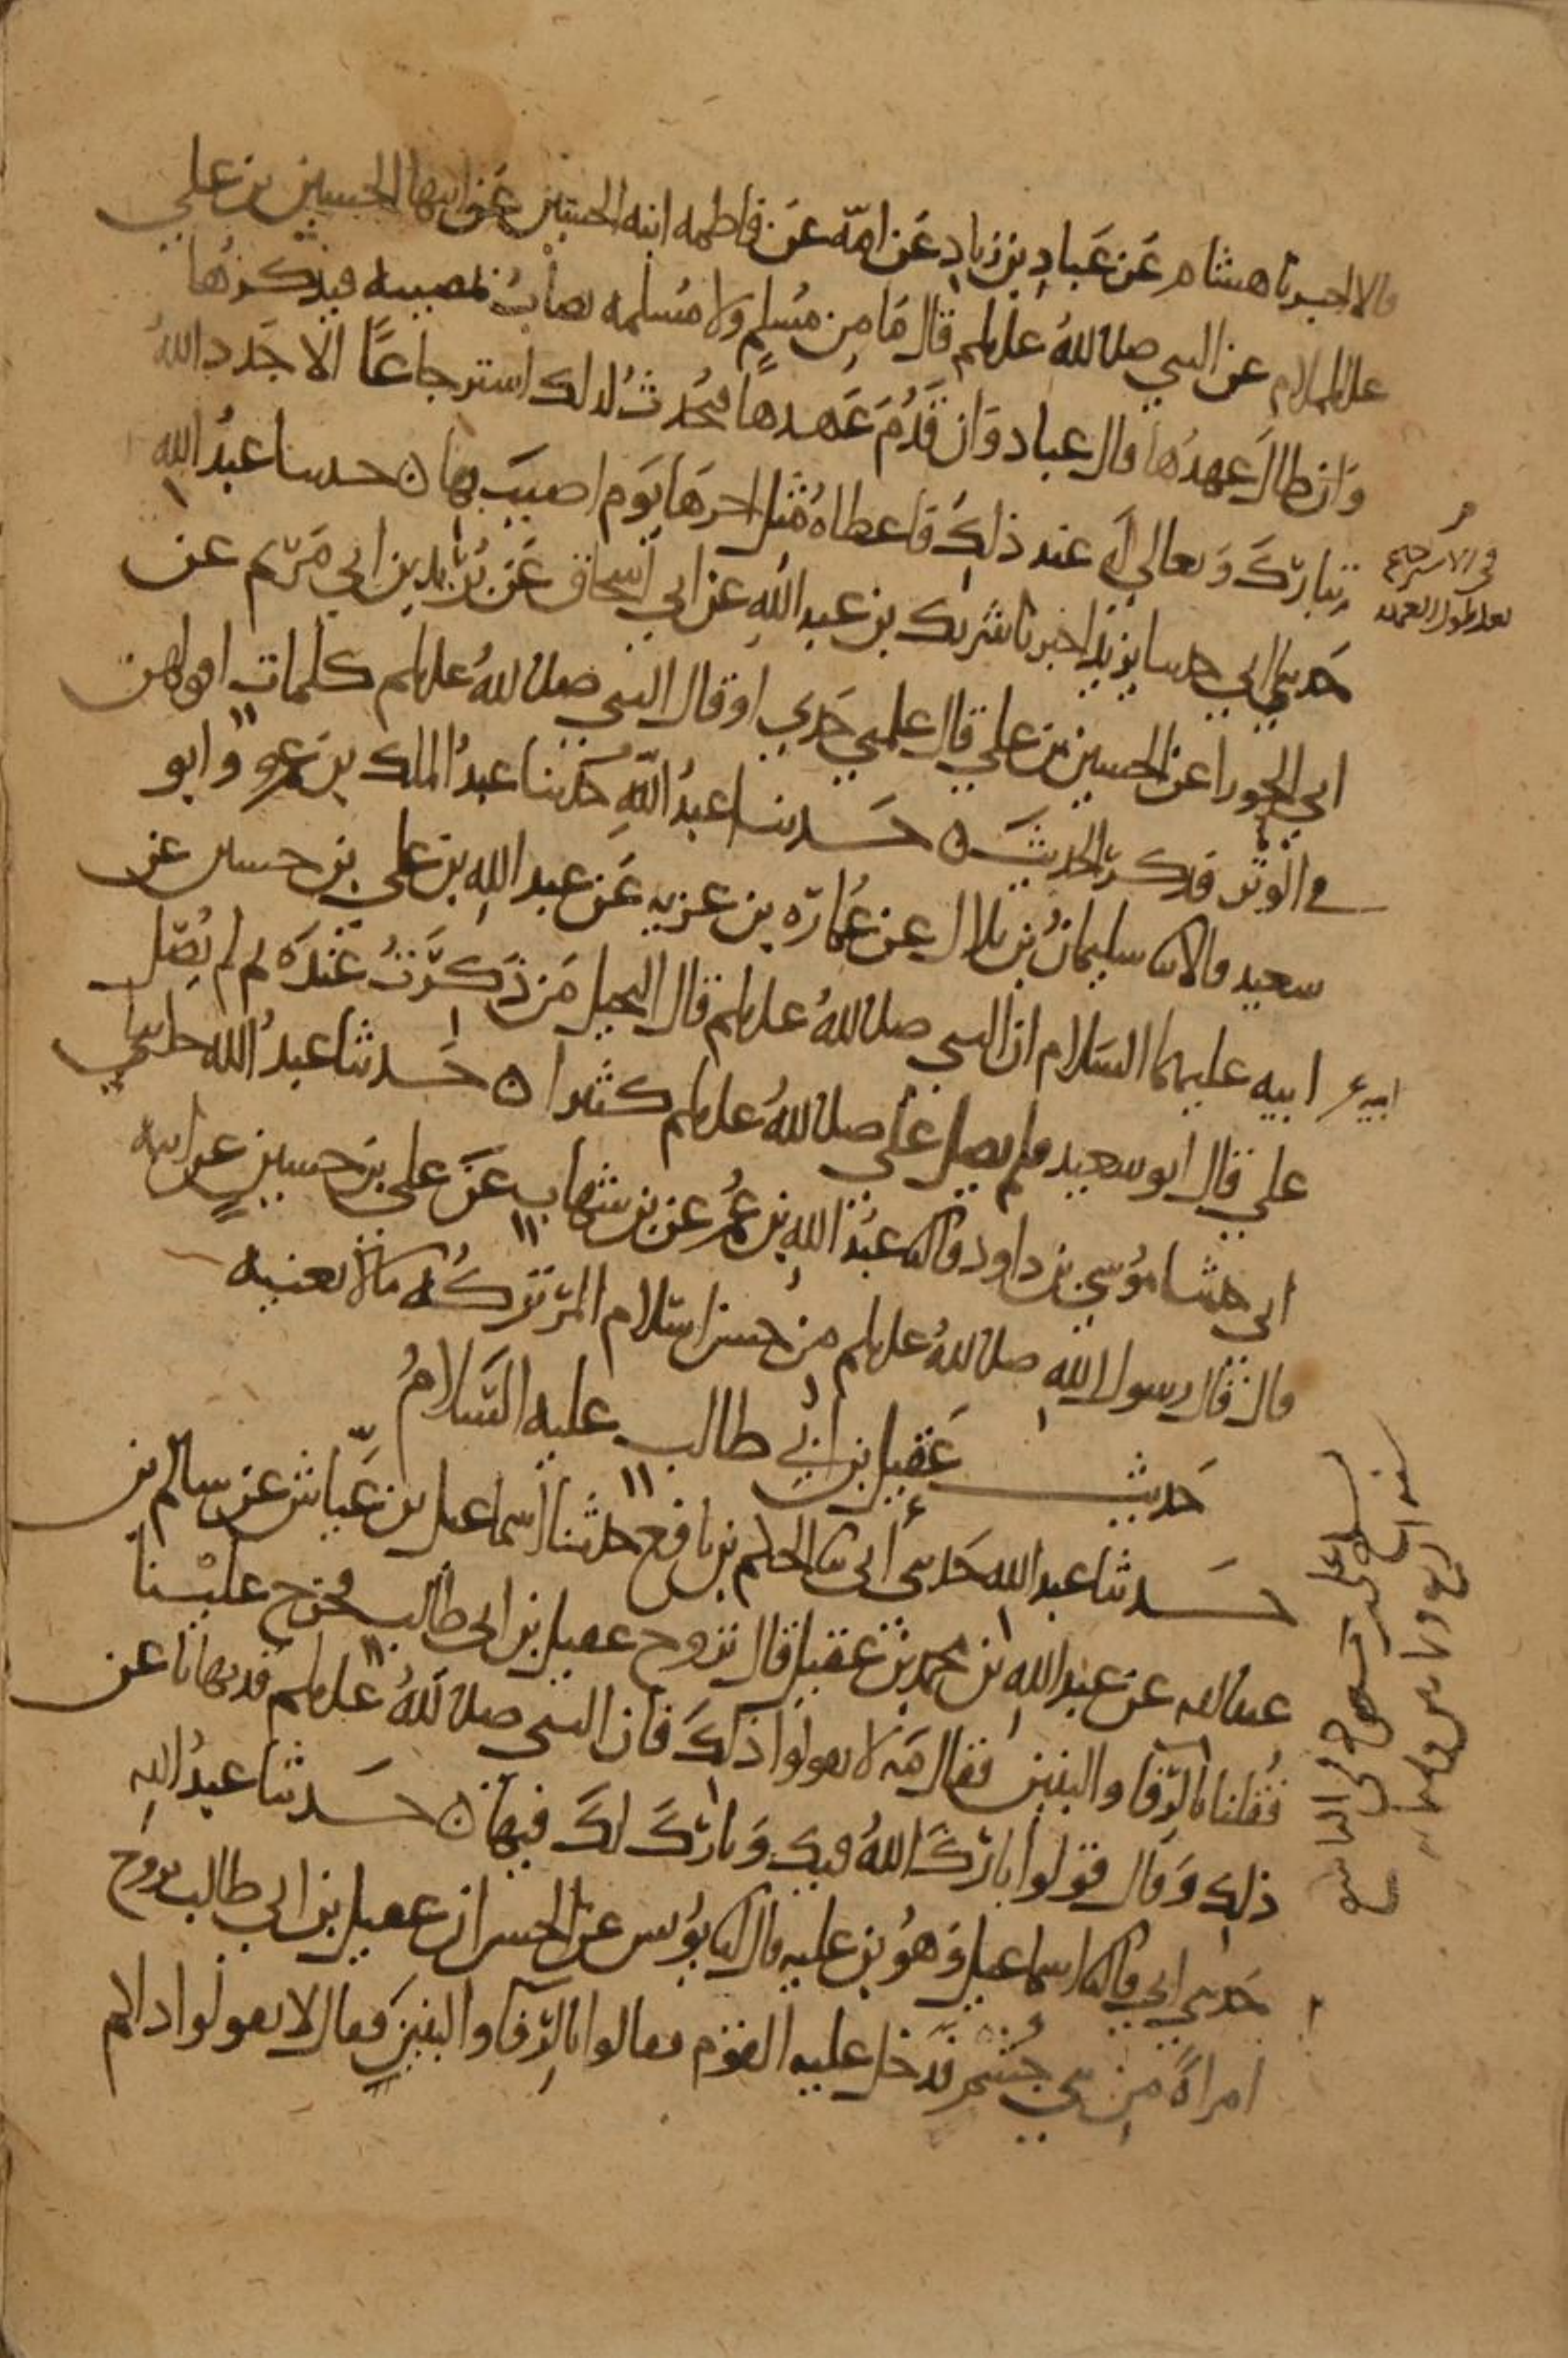 قالا اخبرنا هشام عن عباد بن زياد عن امه عن فاطمه ابنه الحسين عن ابيها الحسين بن علي
عليهما السلام عن النبي صلى الله عليه وسلم قال مَا مِن مُسلمٍ ولا مُسلمه يصابُ بمصيبه فيذكرُها
وَان طالَ عهدُها قال عباد وَان قَدُمَ عَهدها فيُحدثُ لذلك استرجاعًا الا جَدد اللهُ
تبارَكَ وَتعالى له عند ذلكَ فاعطاهُ مثل اجرهَا يَوم اصيبَ بها ن حدثنا عبدُ اللهِ
في الاسترجاع
بعد طول العهد
حَدثني ابي حدثنا يزيد اخبرنا شريك بن عبد اللهِ عن ابي اسحاق عَن بُريد بن ابي مَريم عن
ابي الحورا عن الحسين بن علي قال علمني جَدي او قال النبي صلى اللهُ عليه وسلم كلماتٍ اقولهن
في الوتر فذكر الحديثَ ن حَدثنا عبدُ اللهِ حَدثنا عبدُ الملك بن عمرو وابو
سعيد قالا ثنا سليمانُ بن بلال عن عُمارَه بن غزيه عَن عبد اللهِ بن علي بن حسين عن
ابيه عليهما السَلام ان النبي صلى اللهُ عليه وسلم قال البخيل مَن ذَكرتُ عندَه ثم لم يُصل
علي قال ابو سعيد فلم يصل علي صلى اللهُ عليه وسلم كثيرا ن حَدثنا عبدُ الله حدثني
ابي حدثنا مُوسي بن داود قال ثنا عبدُ الله بن عُمر عن بن شهاب عَن علي بن حسينٍ عن ابيه
قال قال رسول الله صلى اللهُ عليه وسلم من حُسن اسلام المَرء تركُه مَا لا يعنيه
حَديث عَقيل بن ابي طالب عليه السَلامُ
حَدثنا عبد الله حَدثني أبي ثنا الحكم بن نافع حدثنا اسماعيل بن عَيّاش عن سالم بن
عبد الله عن عبد الله بن محمد بن عقيل قال تزوج عقيل بن ابي طالب فخرج علينا
فقُلنا بالرّفا والبنين فقال مَه لا تقولوا ذلكَ فان النبي صلى اللهُ عليه وسلم قد نهانا عن
ذلك وَقال قولوا بارَكَ اللهُ فيك وَبارَكَ لكَ فيها ن حَدثنا عبدُ اللهِ
حَدثني ابي قال ثنا اسماعيل وَهُو بن عليه قال انبا يُونس عن الحسن ان عقيل بن ابي طالب تزوج
امراةً مِن بني جُشم فدَخل عليه القوم فقالوا بالرّفا والبنين فقال لا تقولوا ذاكم